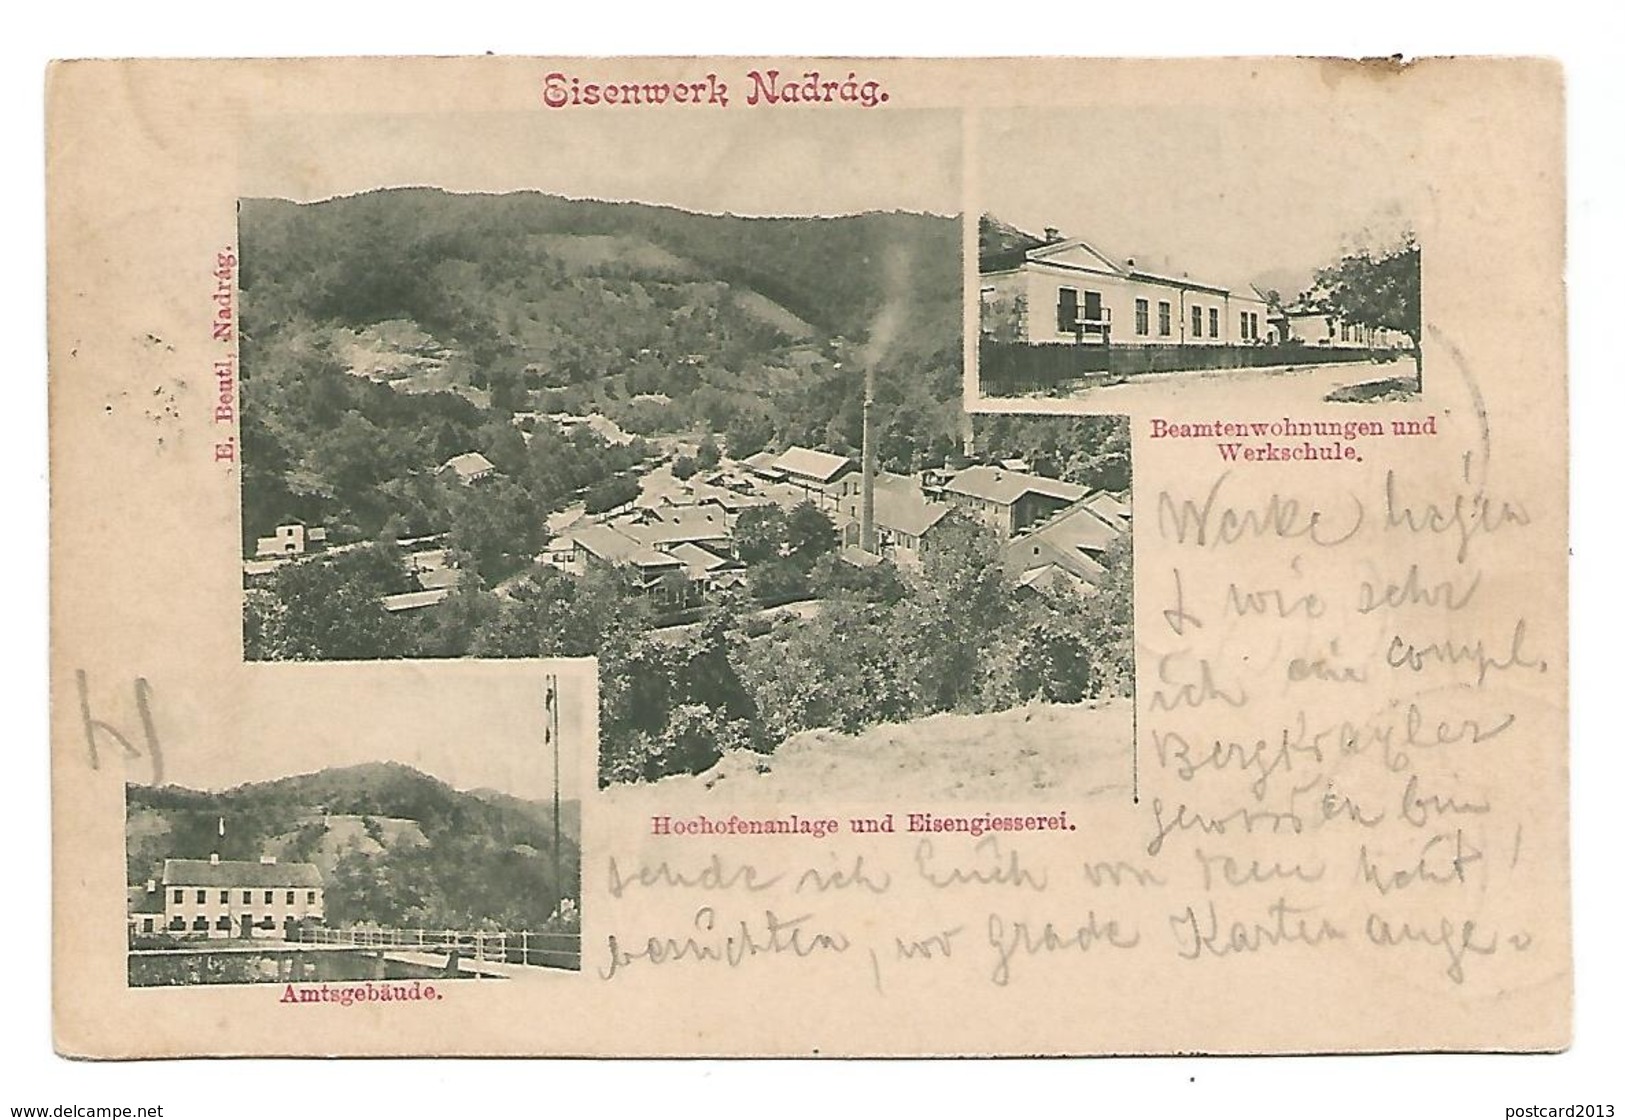 Eisenwerk Nadrág.
E. Beutl, Nadrág.
Beamtenwohnungen und
Werkschule.
Hochofenanlage und Eisengiesserei.
Amtsgebäude.
Werke
& wie sehr
ich ein compl.
geworden bin
sende ich Euch von dem
, wo grade Karten ange-
www.delcampe.net
postcard2013